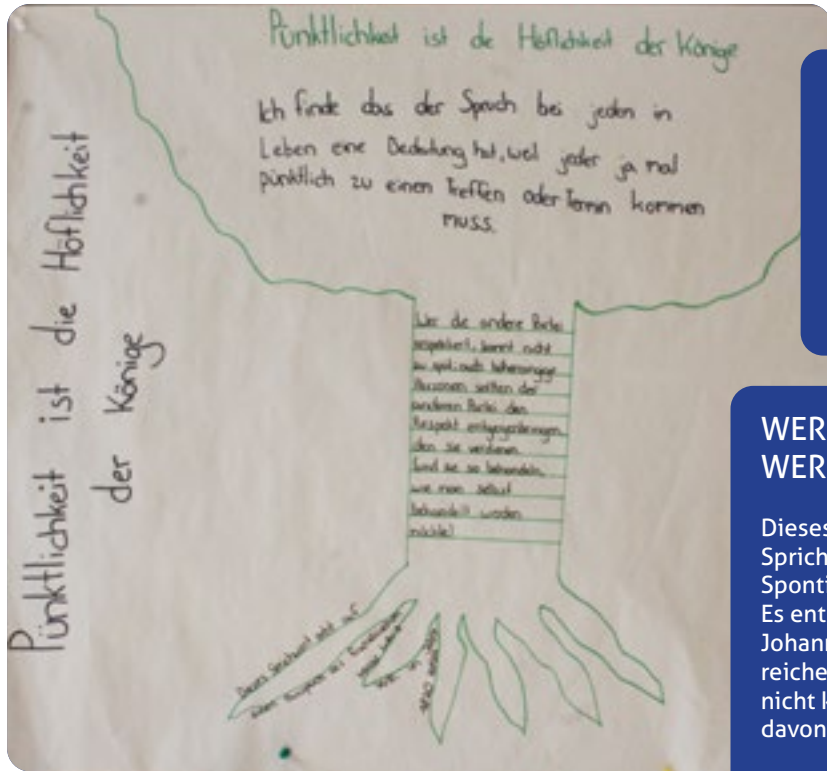 Pünktlichkeit ist de Höflichkeit der Könige
Ich finde das der Spruch bei jeden in
Leben eine Bedeutung hat, weil jeder ja mal
pünktlich zu einen Treffen oder Termin kommen
muss.
Pünktlichkeit ist die Höflichkeit
der Könige
Wer die andere Partei
respektiert, kommt nicht
zu spät auch
Personen sollten der
anderen Partei den
Respekt entgegenbringen
den sie verdienen
und sie so behandeln
wie man selbst
behandelt werden
möchte!
Dieses Sprichwort geht auf
WER
WER
Dieses
Sprich
Spont
Es ent
Johann
reiche
nicht k
davon